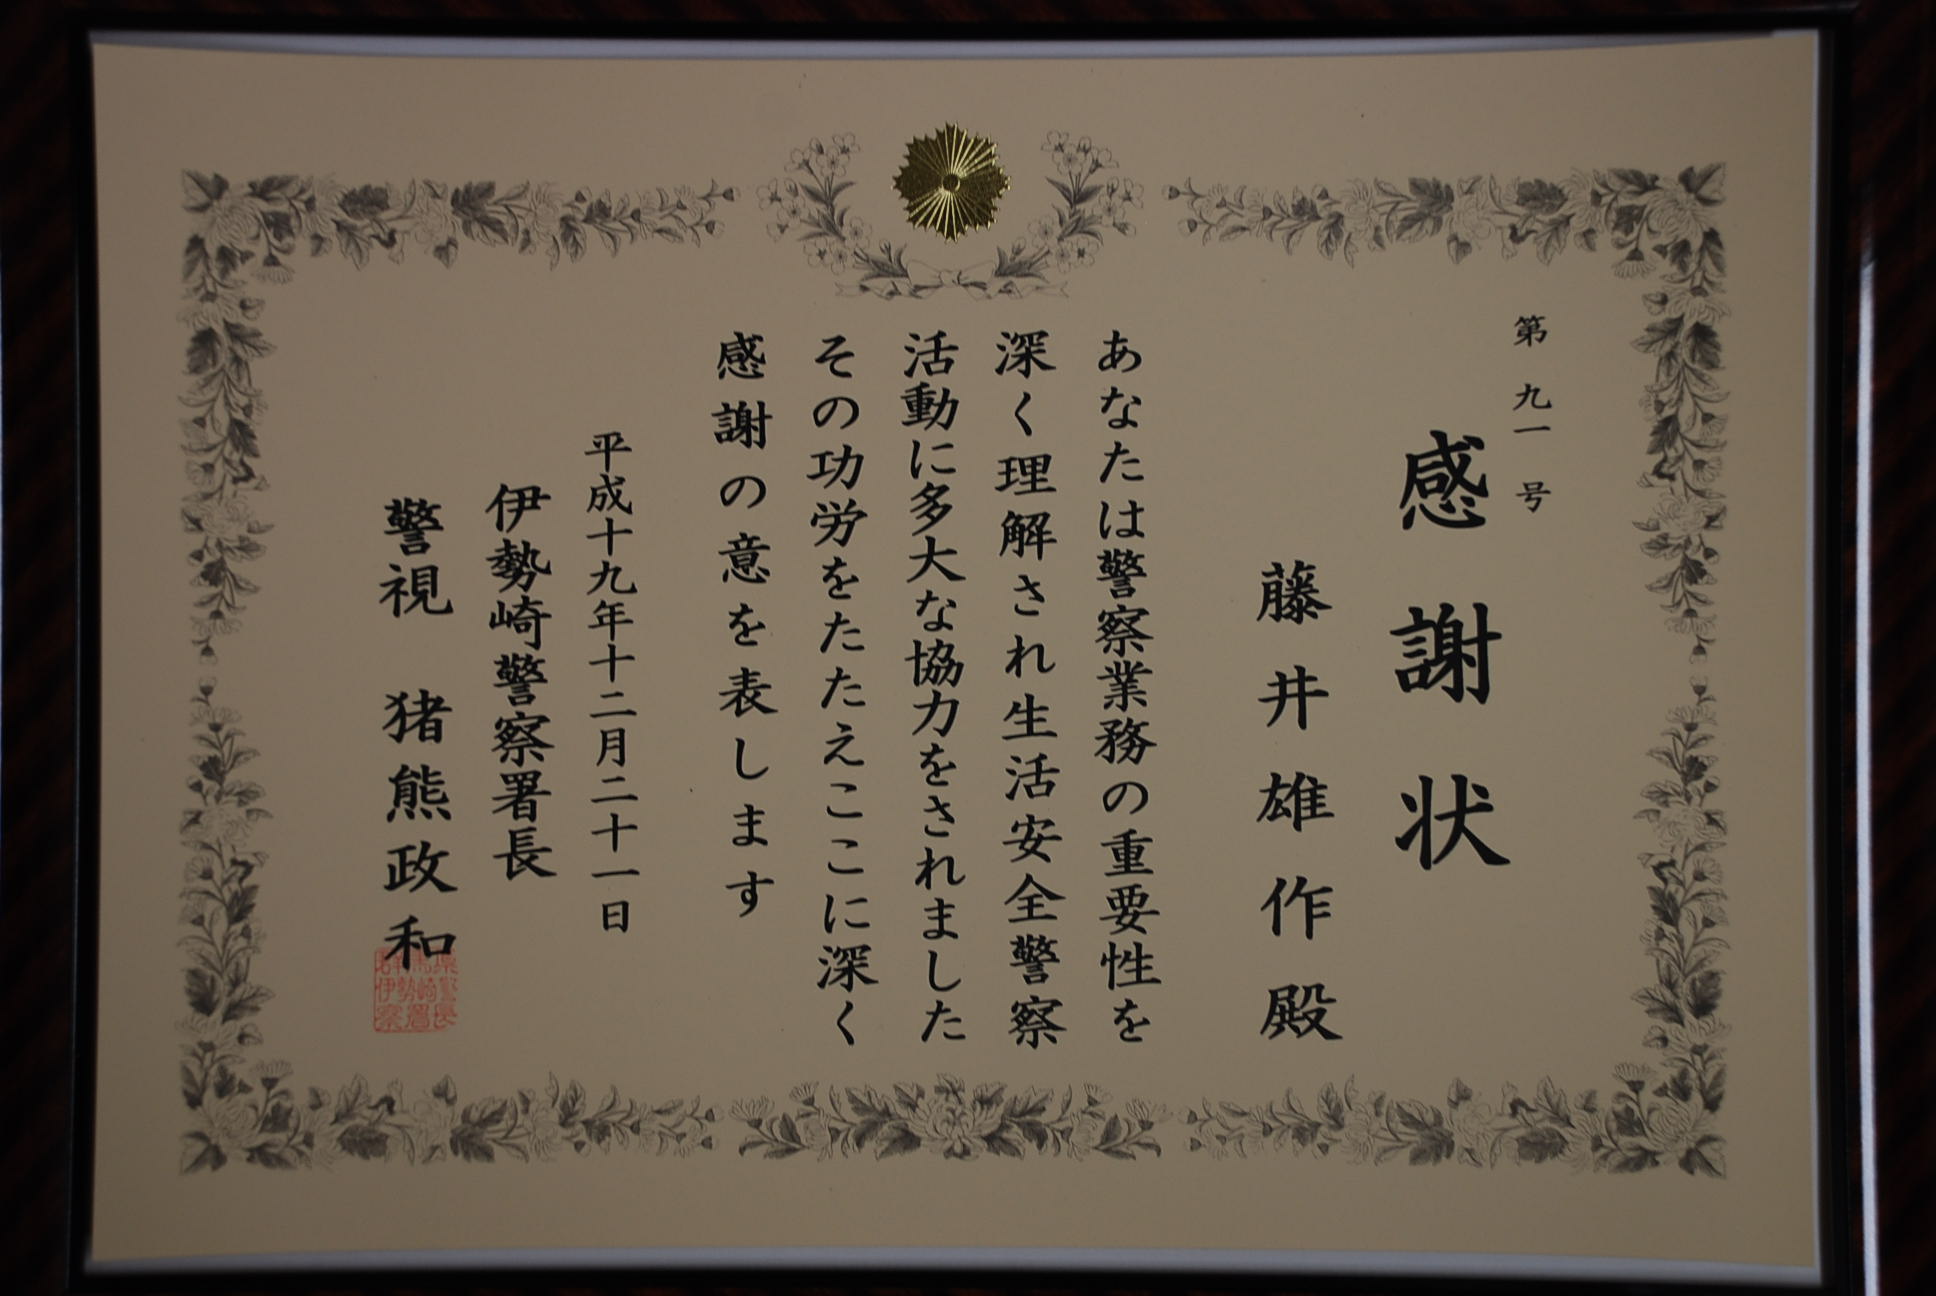 第九一号
感謝状
藤井雄作殿
あなたは警察業務の重要性を
深く理解され生活安全警察
活動に多大な協力をされました
その功労をたたえここに深く
感謝の意を表します
平成十九年十二月二十一日
伊勢崎警察署長
警視 猪熊政和
群馬県
伊勢崎警
察署長